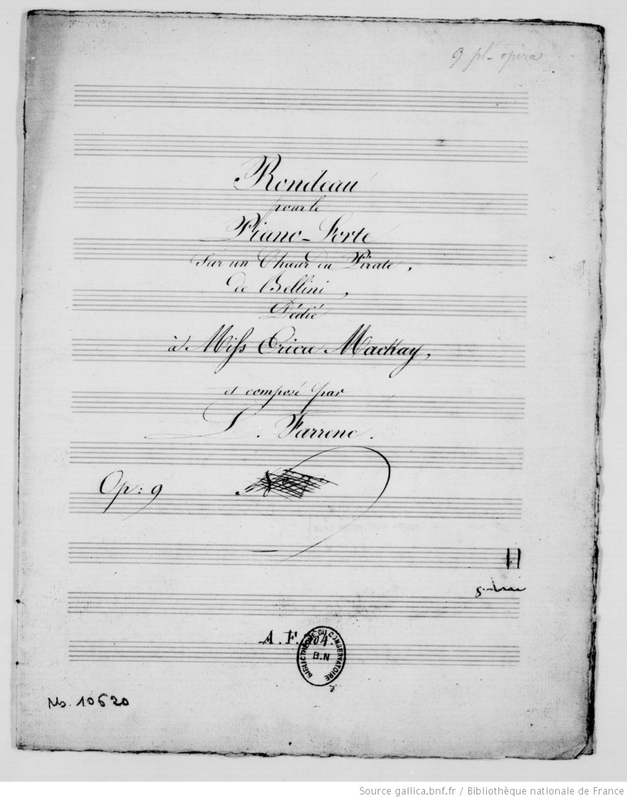 9 pl. opera
Rondeau
pour le
Piano-Forte
Sur un Chœur du Pirate,
de Bellini,
Dédié
à Miss Erica Mackay,
et composé par
L. Farrenc.
Op: 9
A. F. 104.
BIBLIOTHÈQUE DU CONSERVATOIRE
B.N
Ms. 10620
Source gallica.bnf.fr / Bibliothèque nationale de France